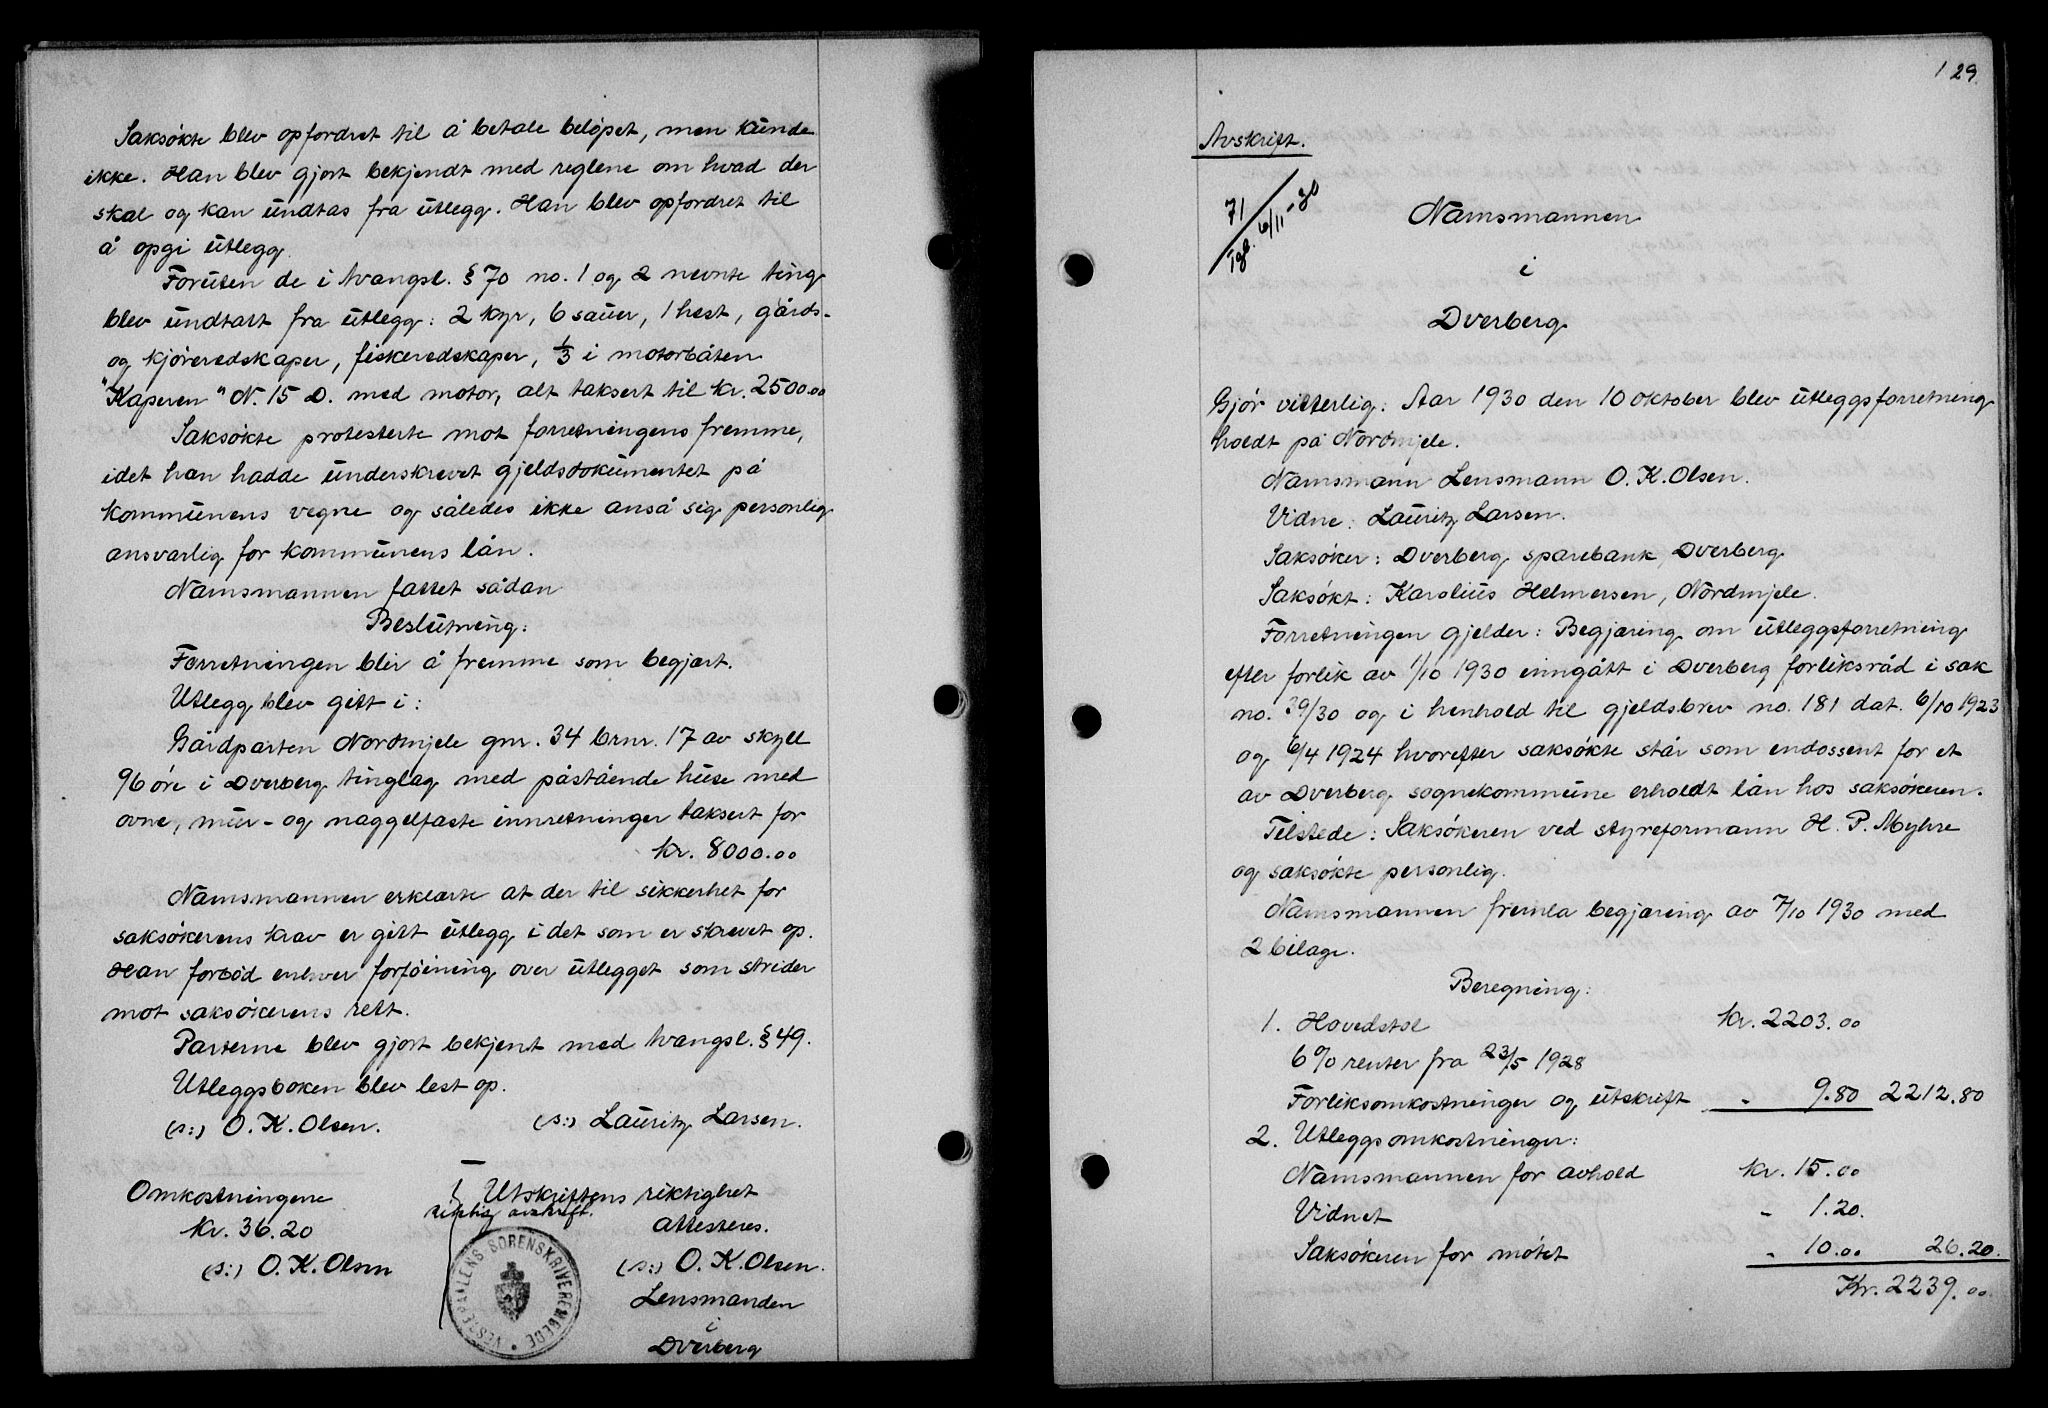 Saksøkte blev opfordret til å betale beløpet, men kunde
ikke. Han blev gjort bekjendt med reglene om hvad der
skal og kan undtas fra utlegg. Han blev opfordret til
å opgi utlegg.
Foruten de i tvangsl. § 70 no. 1 og 2 nevnte ting
blev undtatt fra utlegg: 2 kyr, 6 sauer, 1 hest, gårds-
og kjøreredskaper, fiskeredskaper, 1/3 i motorbåten
"Kaperen" N. 15 D. med motor, alt taksert til kr. 2500.00
Saksøkte protesterte mot forretningens fremme,
idet han hadde underskrevet gjeldsdokumentet på
kommunens vegne og således ikke anså sig personlig
ansvarlig for kommunens lån.
Namsmannen fattet sådan
Beslutning:
Forretningen blir å fremme som begjært.
Utlegg blev gitt i:
Gårdparten Nordmjele gnr. 34 brnr. 17 av skyll
96 øre i Dverberg tinglag med påstående huse med
ovne, mur- og naggelfaste innretninger taksert for
kr. 8000.00
Namsmannen erklærte at der til sikkerhet for
saksøkerens krav er gitt utlegg i det som er skrevet op.
Han forbød enhver forføining over utlegget som strider
mot saksøkerens rett.
Parterne blev gjort bekjent med tvangsl. § 49.
Utleggsboken blev lest op.
(s:) O. K. Olsen. (s:) Lauritz Larsen.
Omkostningene
kr. 36.20
(s:) O. K. Olsen
Utskriftens riktighet
riktig avskrift.
attesteres.
(s:) O. K. Olsen.
Lensmanden
i
Dverberg
VESTERÅLENS SORENSKRIVEREMBEDE
129
Avskrift.
71
Tgl. 6/11-30
Namsmannen
i
Dverberg
Gjør vitterlig: Aar 1930 den 10 oktober blev utleggsforretning
holdt på Nordmjele.
Namsmann Lensmann O. K. Olsen.
Vidne: Lauritz Larsen.
Saksøker: Dverberg sparebank, Dverberg
Saksøkt: Karolius Helmersen, Nordmjele.
Forretningen gjelder: Begjæring om utleggsforretning
efter forlik av 1/10 1930 inngått i Dverberg forliksråd i sak
no. 39/30 og i henhold til gjeldsbrev no. 181 dat. 6/10 1923
og 6/4 1924 hvorefter saksøkte står som endossent for et
av Dverberg sognekommune erholdt lån hos saksøkeren.
Tilstede: Saksøkeren ved styreformann H. P. Myhre
og saksøkte personlig.
Namsmannen fremla begjæring av 7/10 1930 med
2 bilage.
Beregning:
1. Hovedstol kr. 2203.00
6% renter fra 23/5 1928
Forliksomkostninger og utskrift " 9.80 2212.80
2. Utleggsomkostninger:
Namsmannen for avhold kr. 15.00
Vidnet " 1.20.
Saksøkeren for møtet " 10.00 26.20.
Kr. 2239.00